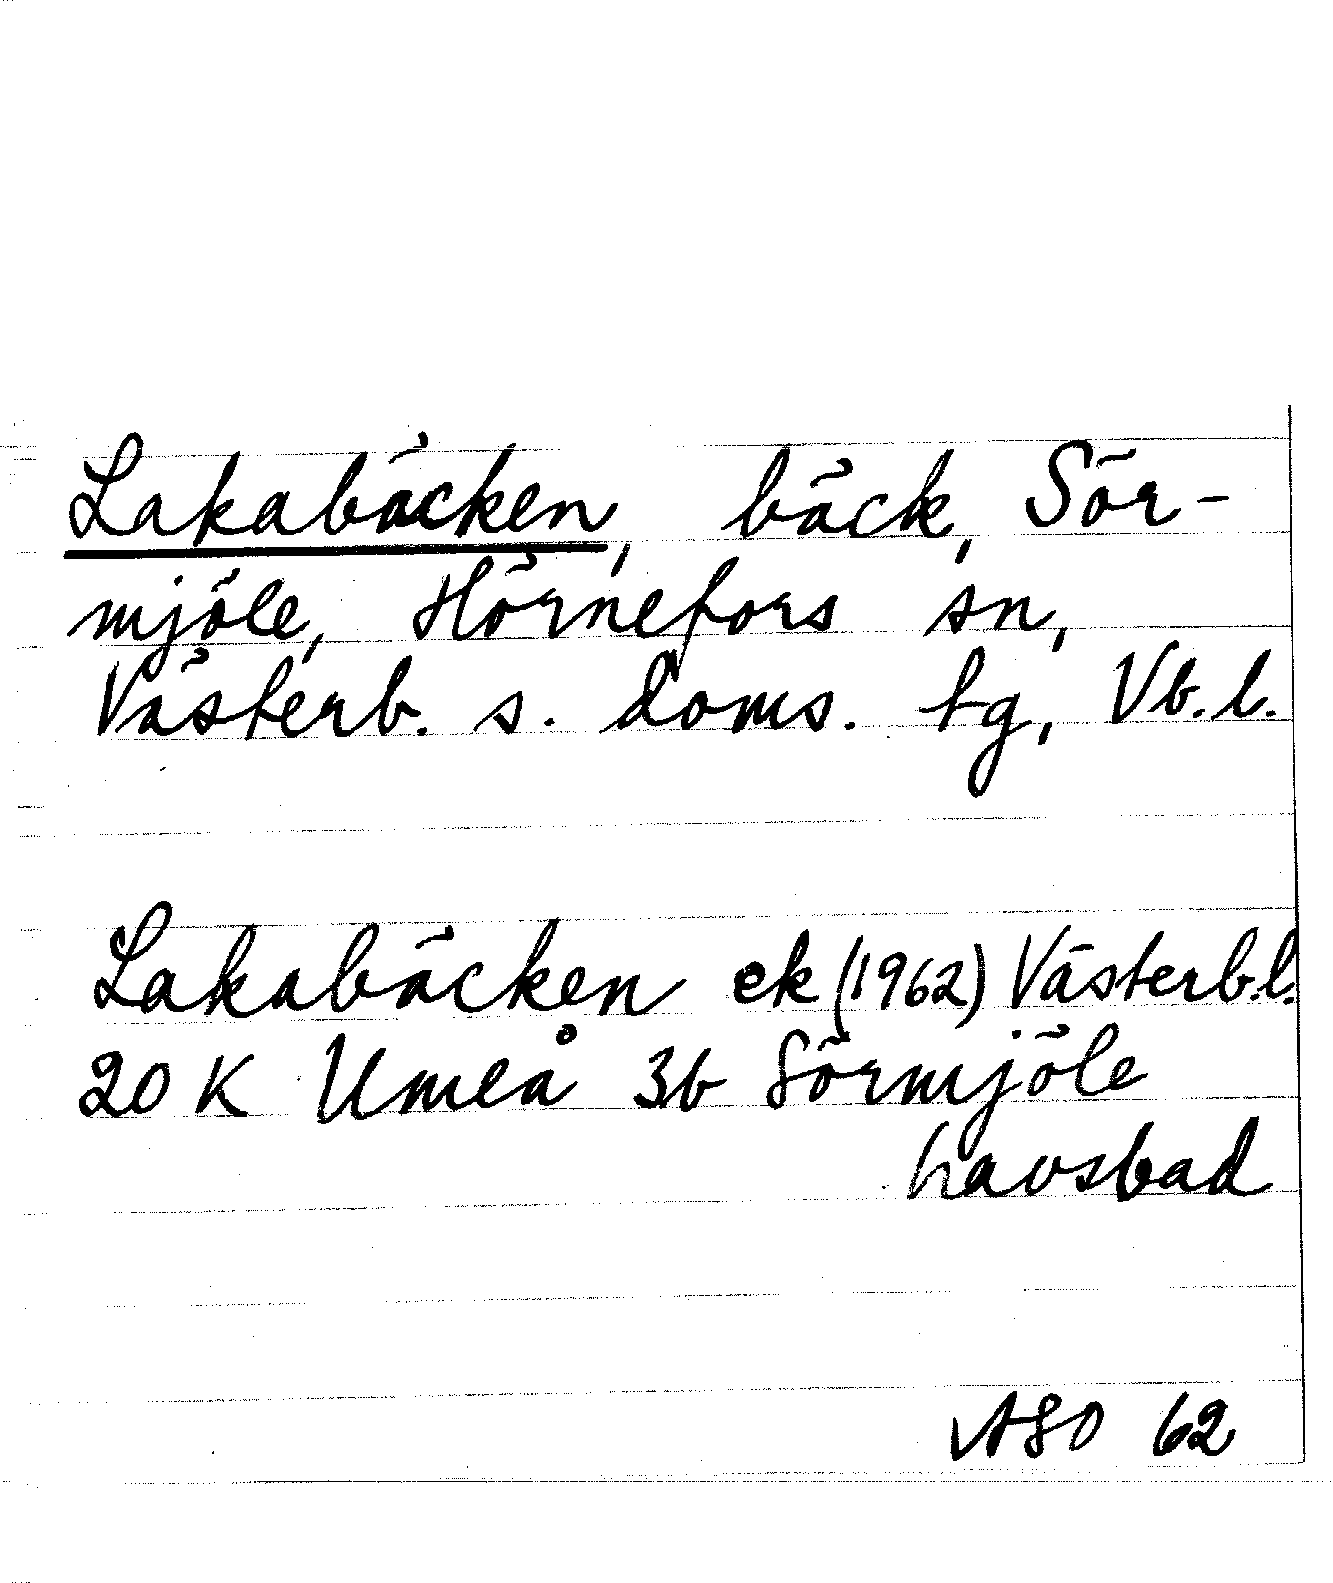 Lakabäcken, bäck, Sör-
mjöle, Hörnefors sn,
Västerb. s. doms. tg, Vb.l.
Lakabäcken ek (1962) Västerb.l.
20 K Umeå 3b Sörmjöle
havsbad
ASO 62